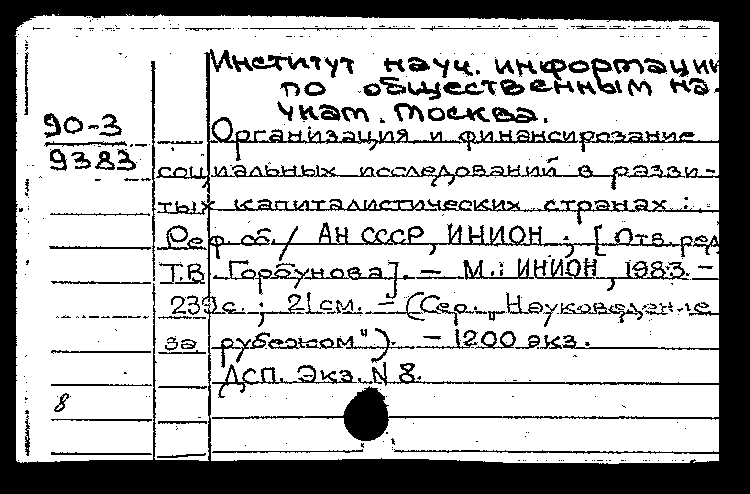 Институт науч. информации
по общественным на-
укам. Москва.
90-3
9383
Организация и финансирование
социальных исследований в разви-
тых капиталистических странах :
Реф. сб. / АН СССР, ИНИОН ; [Отв. ред.
Т.В. Горбунова]. – М. : ИНИОН, 1983. –
239 с. ; 21 см. – (Сер. „Науковедение
за рубежом"). – 1200 экз.
ДСП. Экз. N 8.
8